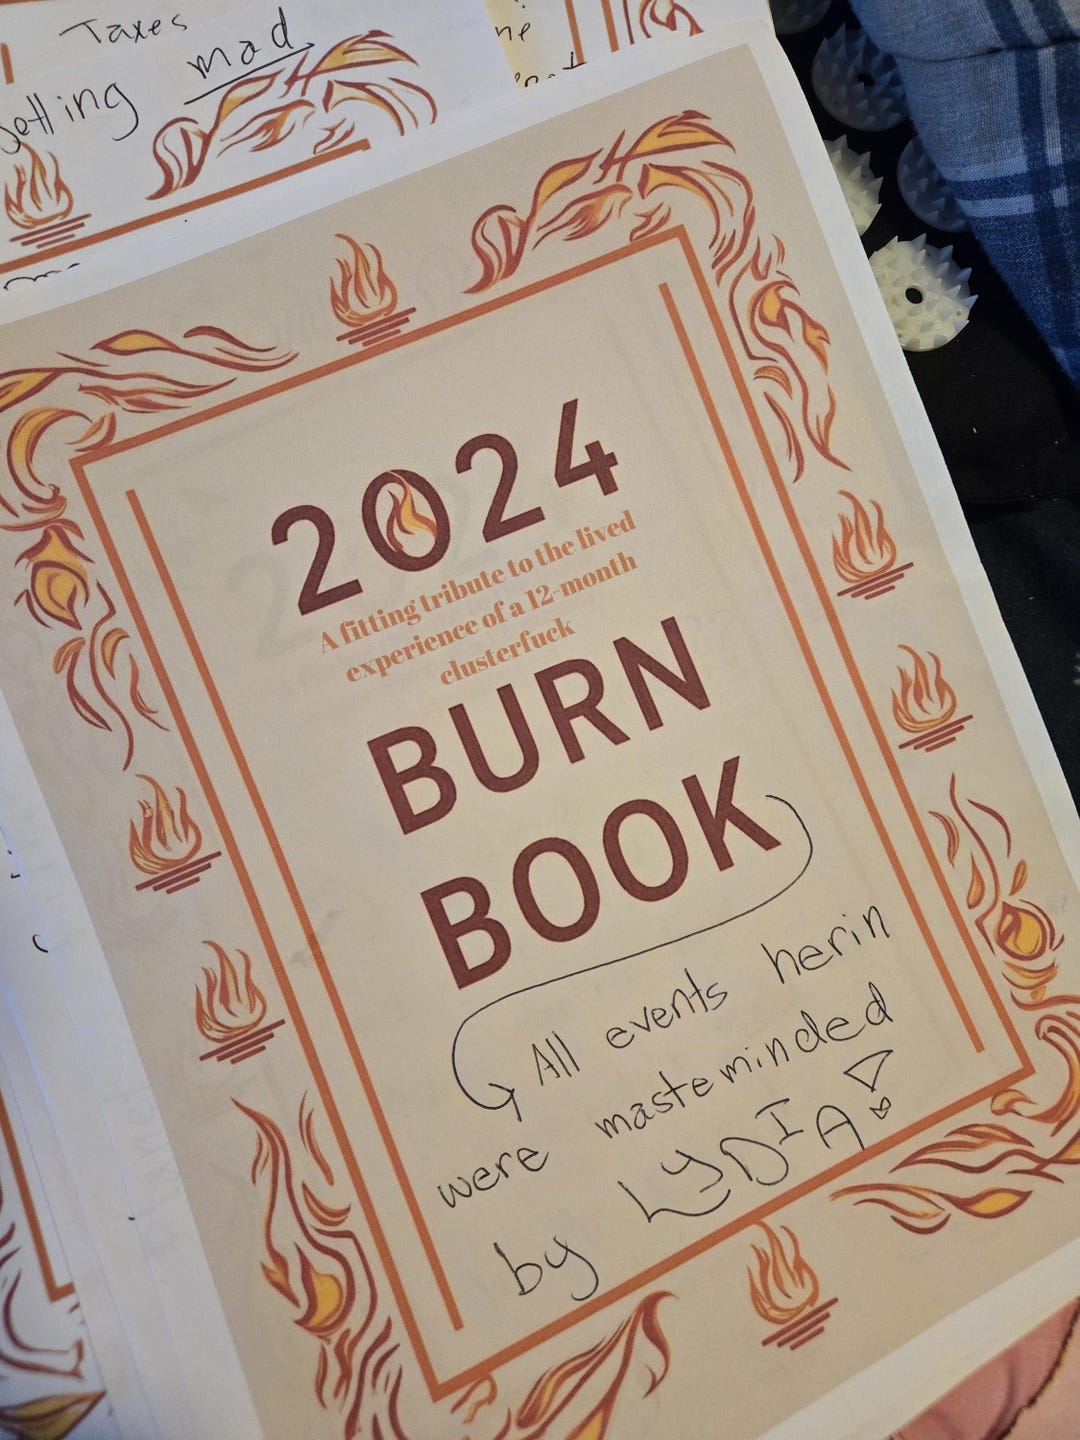 Taxes
Getting mad
2024
A fitting tribute to the lived
experience of a 12-month
clusterfuck
BURN
BOOK
All events herin
were masteminded
by LYDIA!